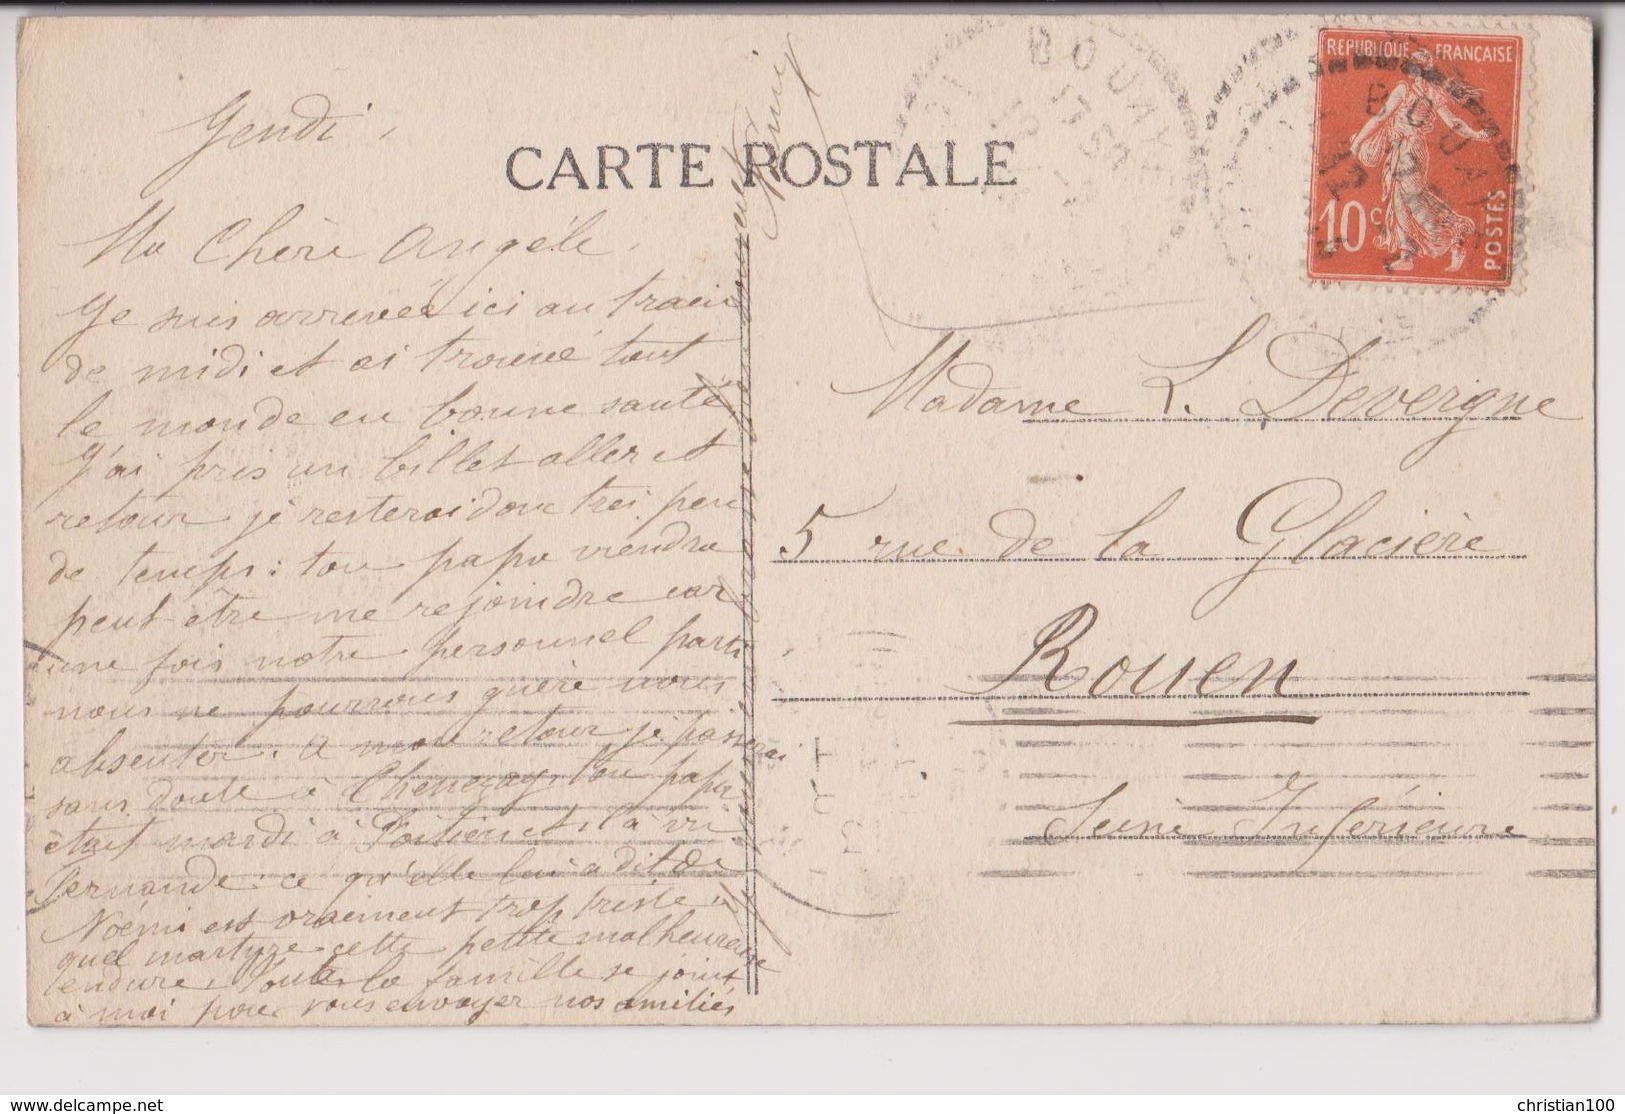 Jendi,
CARTE POSTALE
Ma Chère Angéle,
Je suis arrivée ici au train
de midi et ai trouvé tout
le monde en bonne santé,
J'ai pris un billet aller et
retour je resterai donc très peu
de temps: ton papa viendra
peut être me rejoindre car
une fois notre personnel parti
nous ne pourrons guère nous
absenter. a mon retour je passerai
sans doute à Chenezay, ton papa
était mardi à Poitiers et l'à vu
Fernande: ce qu'elle lui a dit de
Noémi est vraiment trop triste,
quel martyre cette petite malheureuse
endure, Toute la famille se joint
à moi pour vous envoyer nos amitiés
REPUBLIQUE FRANÇAISE
10c
POSTES
BOUAY
17
12
BOUAY
Madame L. Devergne
5 rue de la Glacière
Rouen
Seine Inférieure
christian100
https://www.delcampe.net